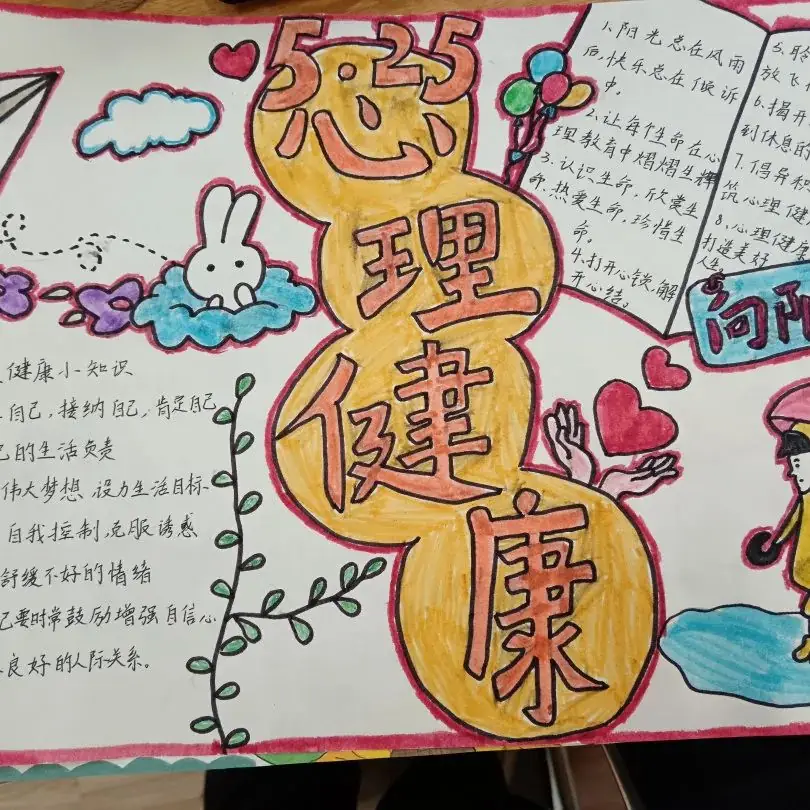 5·25
心
理
健
康
1.阳光总在风雨
后,快乐总在倾诉
中。
2.让每个生命在心
理教育中熠熠生辉
3.认识生命,欣赏生
命,热爱生命,珍惜生
命。
4.打开心锁,解
开心结。
5.聆
放飞
6.揭开
到休息的
7.倡异积
筑心理健
8.心理健康
打造美好
人生
向阳
健康小知识
自己,接纳自己,肯定自己
己的生活负责
伟大梦想 设力生活目标
自我控制,克服诱惑
舒缓不好的情绪
己要时常鼓励增强自信心
良好的人际关系。